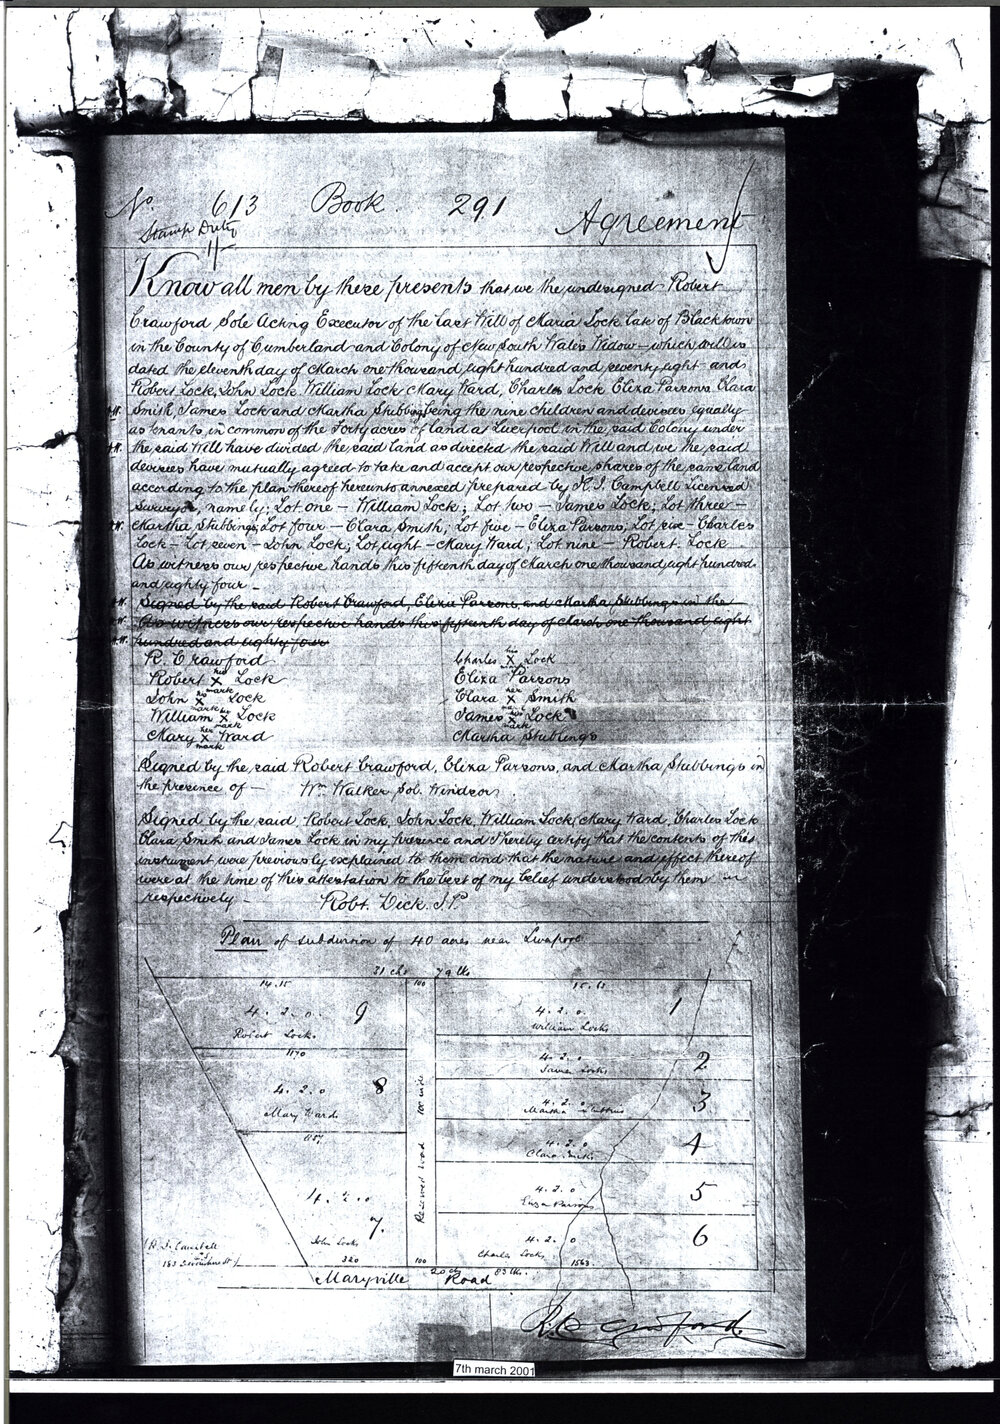 No. 613 Book 291
Agreement
Stamp Duty
1/-
Know all men by these presents that we the undersigned Robert
Crawford Sole Acting Executor of the last Will of Maria Lock late of Blacktown
in the County of Cumberland and Colony of New South Wales Widow – which will is
dated the eleventh day of March one thousand eight hundred and seventy eight – and
Robert Lock, John Lock William Lock Mary Ward, Charles Lock Eliza Parsons Clara
Smith, James Lock and Martha Stubbings being the nine children and devisees equally
as tenants in common of the Forty acres of land at Liverpool in the said Colony under
the said Will have divided the said land as directed the said Will and we the said
devisees have mutually agreed to take and accept our respective shares of the same land
according to the plan thereof hereunto annexed prepared by R. J. Campbell Licensed
Surveyor, namely: Lot one – William Lock; Lot two – James Lock; Lot three –
Martha Stubbings, Lot four – Clara Smith; Lot five – Eliza Parsons; Lot six – Charles
Lock – Lot seven – John Lock; Lot eight – Mary Ward; Lot nine – Robert Lock
As witness our respective hands this fifteenth day of March one thousand eight hundred
and eighty four –
Signed by the said Robert Crawford, Eliza Parsons, and Martha Stubbings in the
As witness our respective hands this fifteenth day of March one thousand eight
hundred and eighty four
R. Crawford
Robert his X mark Lock
John his X mark Lock
William his X mark Lock
Mary her X mark Ward
Charles his X mark Lock
Eliza Parsons
Clara her X mark Smith
James his X mark Lock
Martha Stubbings
Signed by the said Robert Crawford, Eliza Parsons, and Martha Stubbings in
the presence of – Wm. Walker Sol. Windsor
Signed by the said Robert Lock, John Lock, William Lock, Mary Ward, Charles Lock
Clara Smith and James Lock in my presence and I hereby certify that the contents of this
instrument were previously explained to them and that the nature and effect thereof
were at the time of this attestation to the best of my belief understood by them
respectively – Robt. Dick. J.P.
Plan of subdivision of 40 acres near Liverpool
31 chs 79 lks
14.15 100 15.61
4. 2. 0. 9
Robert Lock
1170
4. 2. 0 8
Mary Ward
4. 2. 0
7.
John Lock
320
Reserved road 100 wide
4. 2. 0 1
William Lock
4. 2. 0 2
James Lock
4. 2. 0 3
Martha Stubbins
4. 2. 0 4
Clara Smith
4. 2. 0 5
Eliza Parsons
4. 2. 0 6
Charles Lock
1568
100
R. J. Campbell
20 ch 83 lks
Maryville Road
R. Crawford
7th march 2001